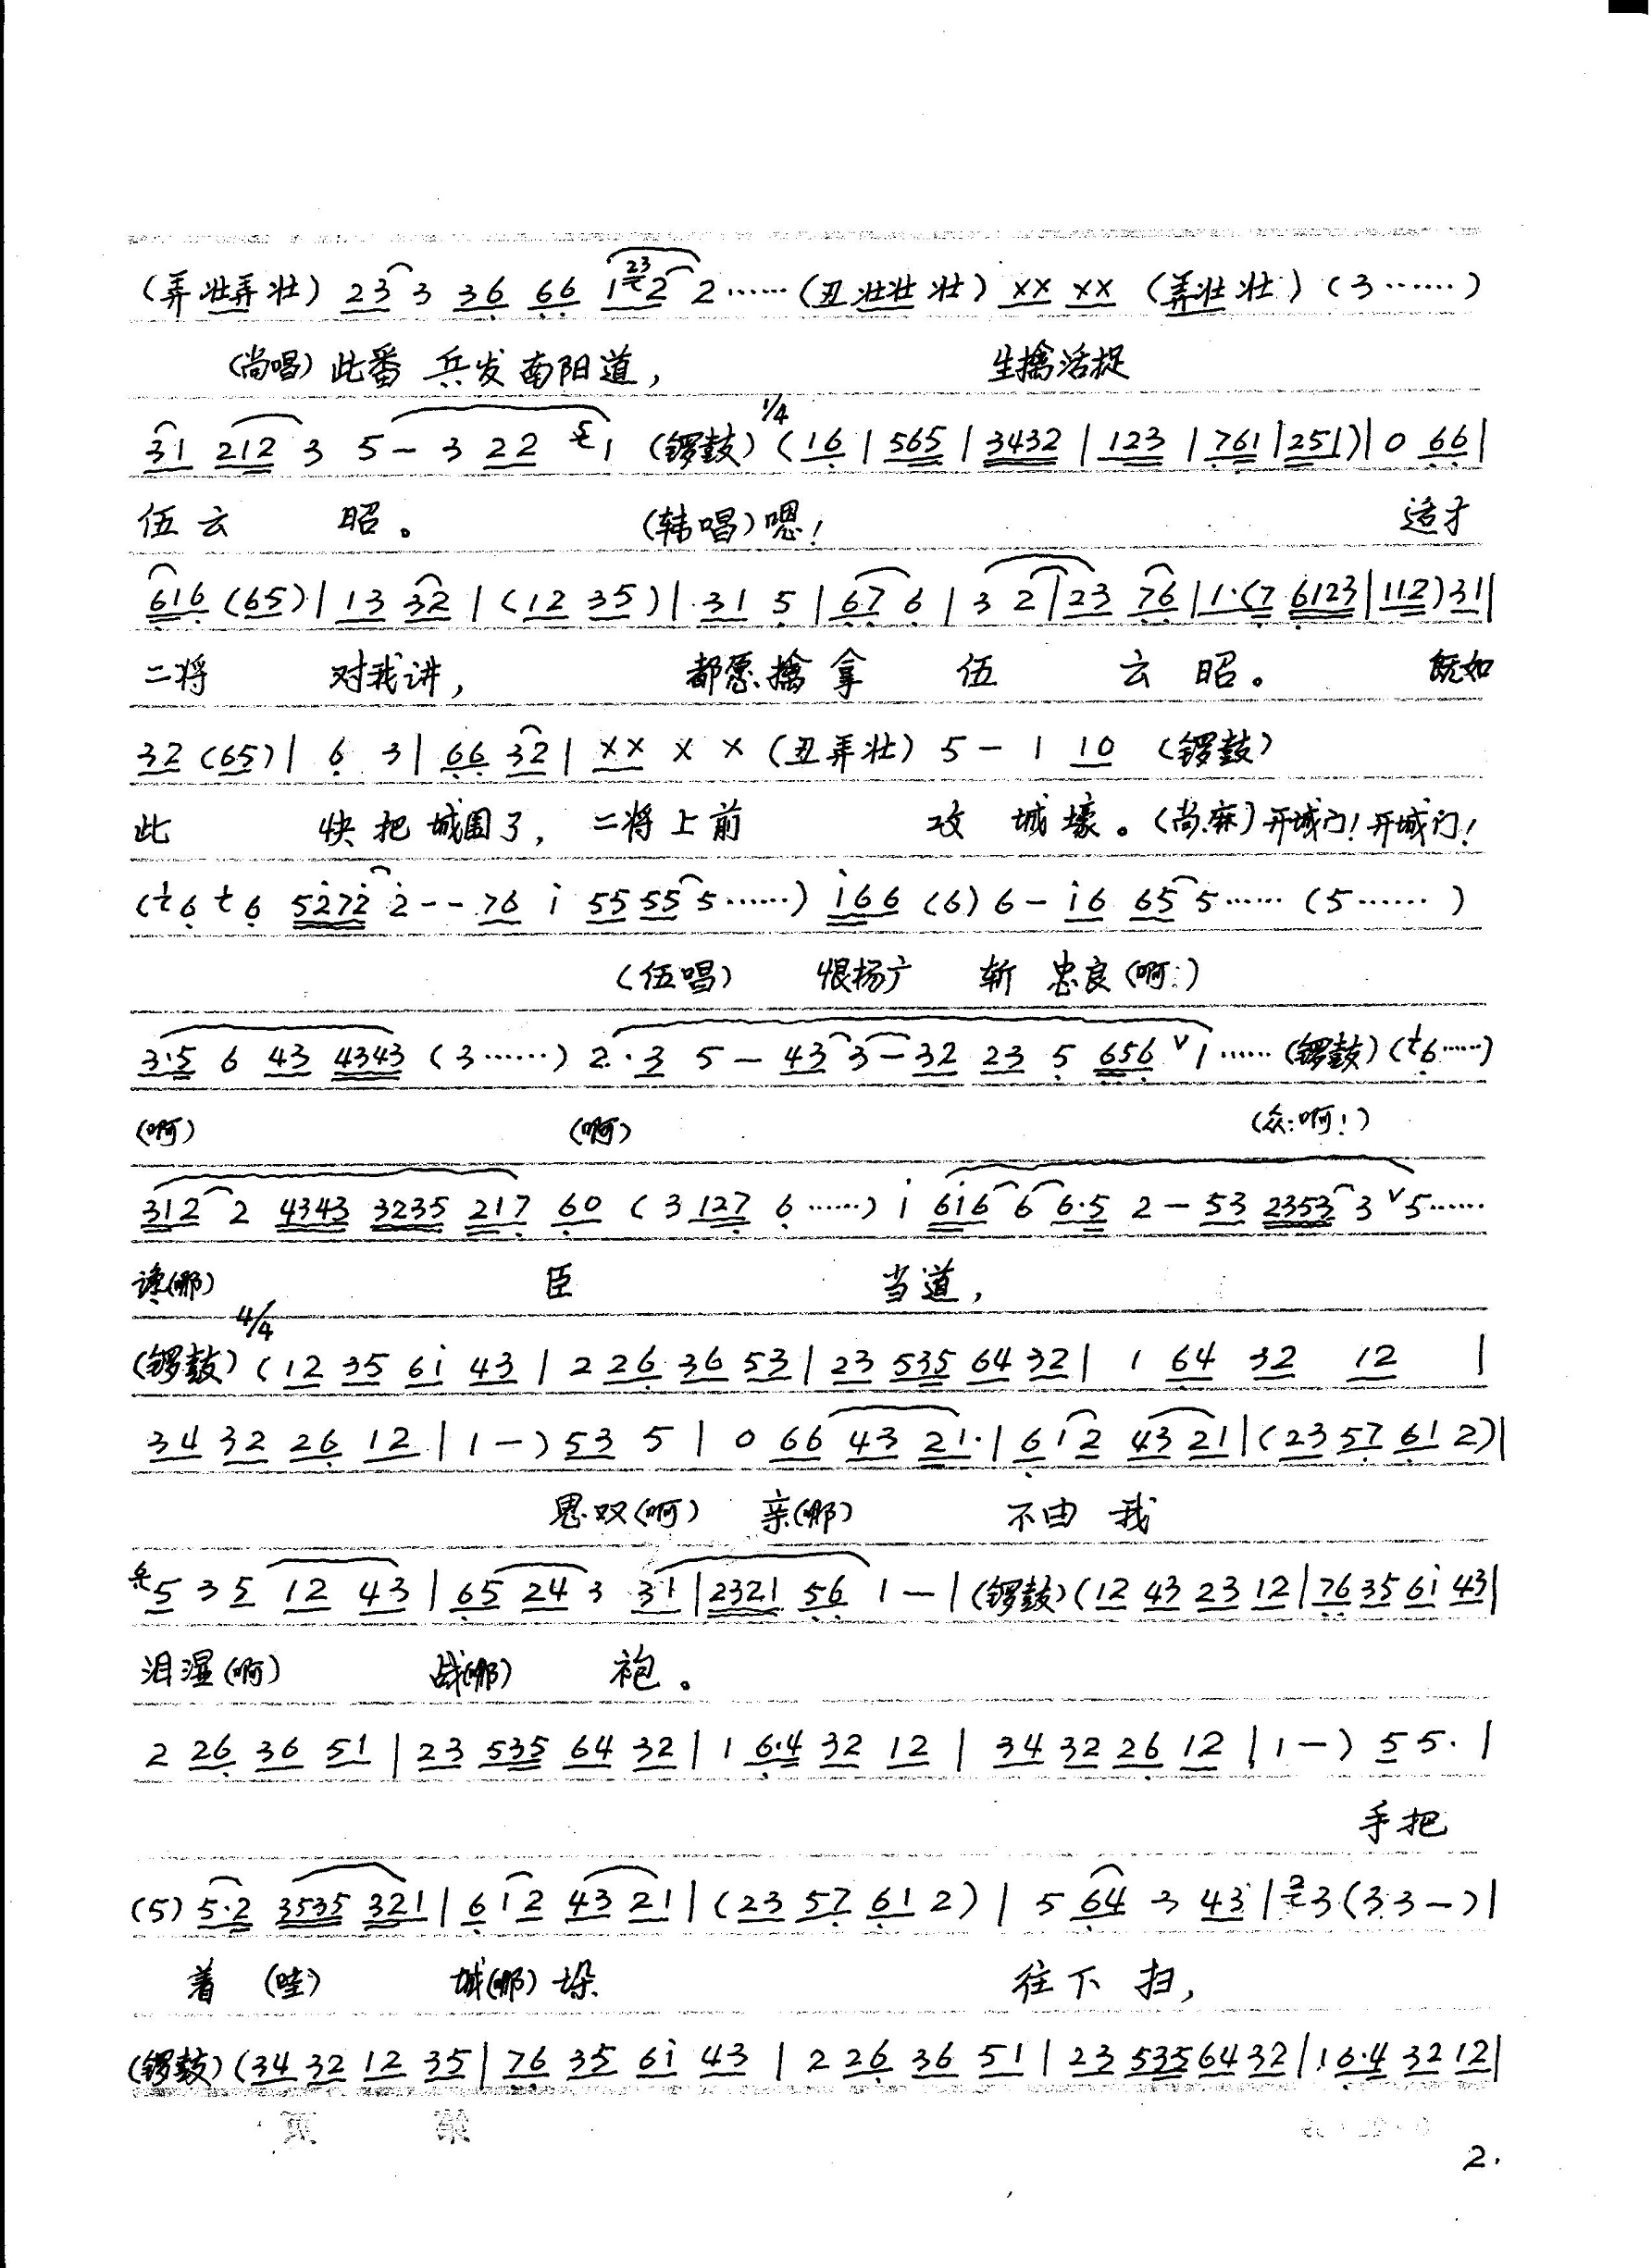 (弄壮弄壮) 23 3 36 66 1 23 2 2…… (丑壮壮壮) XX XX (弄壮壮) (3……)
(尚唱) 此番 兵发南阳道, 生擒活捉
1/4
31 212 3 5 – 3 22 1 (锣鼓) (16 | 565 | 3432 | 123 | 761 | 251) | 0 66 |
伍云 昭。 (韩唱) 嗯! 适才
616 (65) | 13 32 | (12 35) | 31 5 | 67 6 | 3 2 | 23 76 | 1·(7 6123 | 112) 31 |
二将 对我讲, 都愿擒拿 伍 云 昭。 既如
32 (65) | 6 3 | 66 32 | XX X X (丑弄壮) 5 – 1 10 (锣鼓)
此 快把城围了, 二将上前 攻 城壕。(尚.麻) 开城门! 开城门!
(サ6 サ6 5272 2 - - 76 i 55 55 5……) i66 (6) 6 – i6 65 5…… (5……)
(伍唱) 恨杨广 斩 忠良 (啊:)
3·5 6 43 4343 (3……) 2·3 5 – 43 3 – 32 23 5 656 ∨ 1…… (锣鼓) (サ6……)
(啊) (啊) (众:啊!)
312 2 4343 3235 217 60 (3 127 6……) i 6i6 6 6·5 2 – 53 2353 3 ∨ 5……
谗(那) 臣 当道,
4/4
(锣鼓) (12 35 6i 43 | 2 26 36 53 | 23 535 64 32 | 1 64 32 12 |
34 32 26 12 | 1 –) 53 5 | 0 66 43 21· | 6 12 43 21 | (23 57 61 2) |
思双(啊) 亲(那) 不由 我
5 3 5 12 43 | 65 24 3 31 | 2321 56 1 – | (锣鼓) (12 43 23 12 | 76 35 6i 43 |
泪湿(啊) 战(那) 袍。
2 26 36 51 | 23 535 64 32 | 1 6·4 32 12 | 34 32 26 12 | 1 –) 5 5· |
手把
(5) 5·2 3535 321 | 6 12 43 21 | (23 57 61 2) | 5 64 3 43 | 2 3 (3 3 –) |
着 (哇) 城(那) 垛 往下 扫,
(锣鼓) (34 32 12 35 | 76 35 6i 43 | 2 26 36 51 | 23 535 64 32 | 1 6·4 32 12 |
第 页
2.